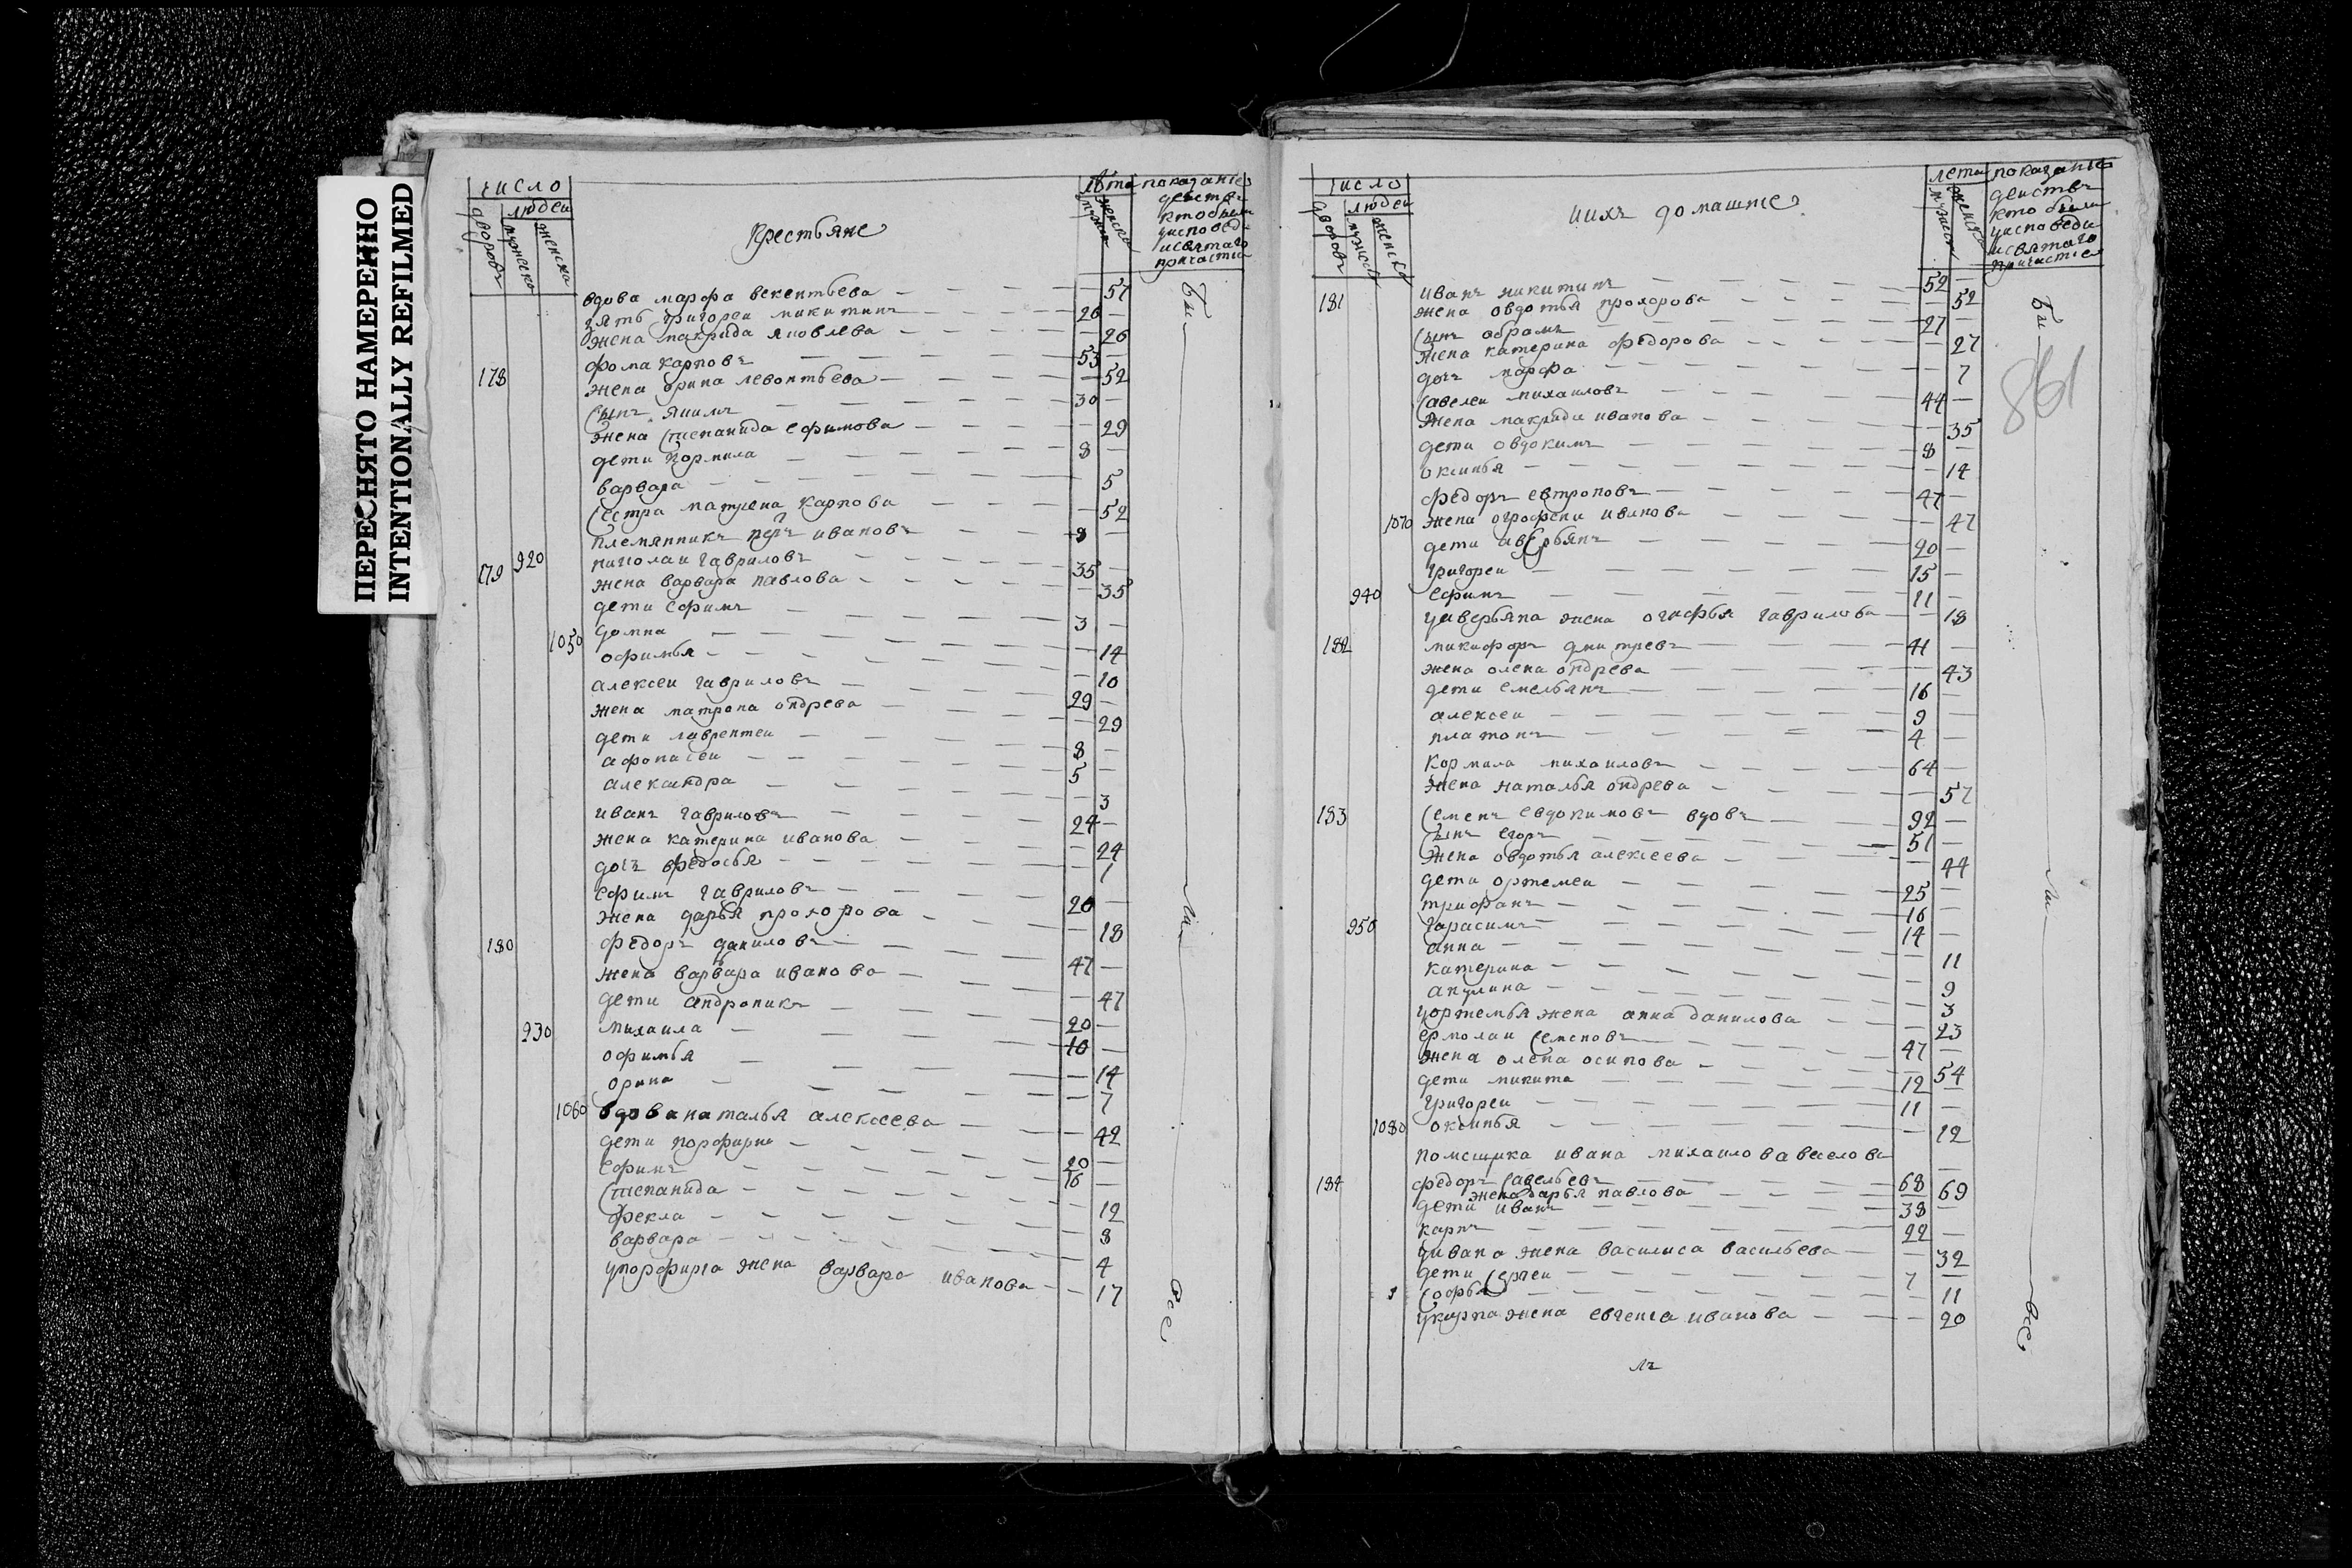 ПЕРЕСНЯТО НАМЕРЕННО
INTENTIONALLY REFILMED
число
людей
дворовъ
мужеска
женска
Крестьяне
лѣта
мужеска
женска
показание
действъ
кто были
уисповеди
исвятаго
причастиа
вдова марфа векентьева 57
зять григореи никитинъ 26
жена макрида яковлева 26
178 фома карповъ 53
жена орина левонтьева 52
сынъ якимъ 30
жена степанида ефимова 29
дети кормила 8
варвара 5
сестра матрена карпова 52
племянникъ петръ ивановъ 8
179 920 николаи гавриловъ 35
жена варвара павлова 35
дети ефимъ 3
1050 домна 14
офимья 10
алексеи гавриловъ 29
жена матрона ондрева 29
дети лаврентеи 8
афонасеи 5
александра 3
иванъ гавриловъ 24
жена катерина иванова 24
дочъ федосья 1
ефимъ гавриловъ 20
жена дарья прохорова 18
180 федоръ даниловъ 47
жена варвара иванова 47
дети андроникъ 20
930 михаила 10
офимья 14
орина 7
1060 вдова наталья алексеева 42
дети порфирии 20
ефимъ 16
степанида 12
фекла 8
варвара 4
упорфирга жена варвара иванова 17
Бы
ли
все
число
людей
дворовъ
мужеска
женска
иихъ домашние
лета
мужеска
женска
показание
действъ
кто были
уисповеди
исвятаго
причастие
861
181 иванъ никитинъ 52
жена овдотья прохорова 52
сынъ обрамъ 27
жена катерина федорова 27
дочъ марфа 7
савелеи михаиловъ 44
жена макрида иванова 35
дети овдокимъ 8
оксинья 14
федоръ евтроповъ 47
1070 жена огрофена иванова 47
дети аверьянъ 20
григореи 15
940 ефимъ 11
уаверьяна жена огнефья гаврилова 18
182 микифоръ дмитревъ 41
жена олена ондрева 43
дети емельянъ 16
алексеи 9
платонъ 4
кормила михаиловъ 64
жена наталья ондрева 57
183 семенъ евдокимовъ вдовъ 92
сынъ егоръ 51
жена овдотья алексеева 44
дети ортемеи 25
трифанъ 16
950 гарасимъ 14
анна 11
катерина 9
акулина 3
уортемья жена анна данилова 23
ермолаи семеновъ 47
жена олена осипова 54
дети микита 12
григореи 11
1080 оксинья 12
помещика ивана михаилова
184 федоръ савельевъ 68
жена дарья павлова 69
дети иванъ 38
карпъ 22
уивана жена василиса васильева 32
дети сергеи 7
софья 11
укарпа жена евгенга иванова 20
Бы
ли
все